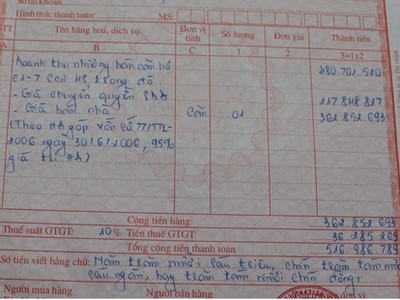 Số tài khoản
Hình thức thanh toán: MS:
STT Tên hàng hoá, dịch vụ Đơn vị tính Số lượng Đơn giá Thành tiền
A B C 1 2 3=1x2
Doanh thu nhượng bán căn hộ 480.701.520
E1-7 trong đó
- Giá chuyển quyền SDĐ 117.848.827
- Giá bán nhà Căn 01 362.852.693
(Theo HĐ góp vốn số 77/TTL-
2006 ngày 30/6/2006, 95%
giá trị HĐ)
Cộng tiền hàng: 362 852 693
Thuế suất GTGT: 10% Tiền thuế GTGT: 36 285 269
Tổng cộng tiền thanh toán 516 986 789
Số tiền viết bằng chữ: Năm trăm mười sáu triệu, chín trăm tám mươi
sáu ngàn, bảy trăm tám mươi chín đồng
Người mua hàng Người bán hàng đơn vị